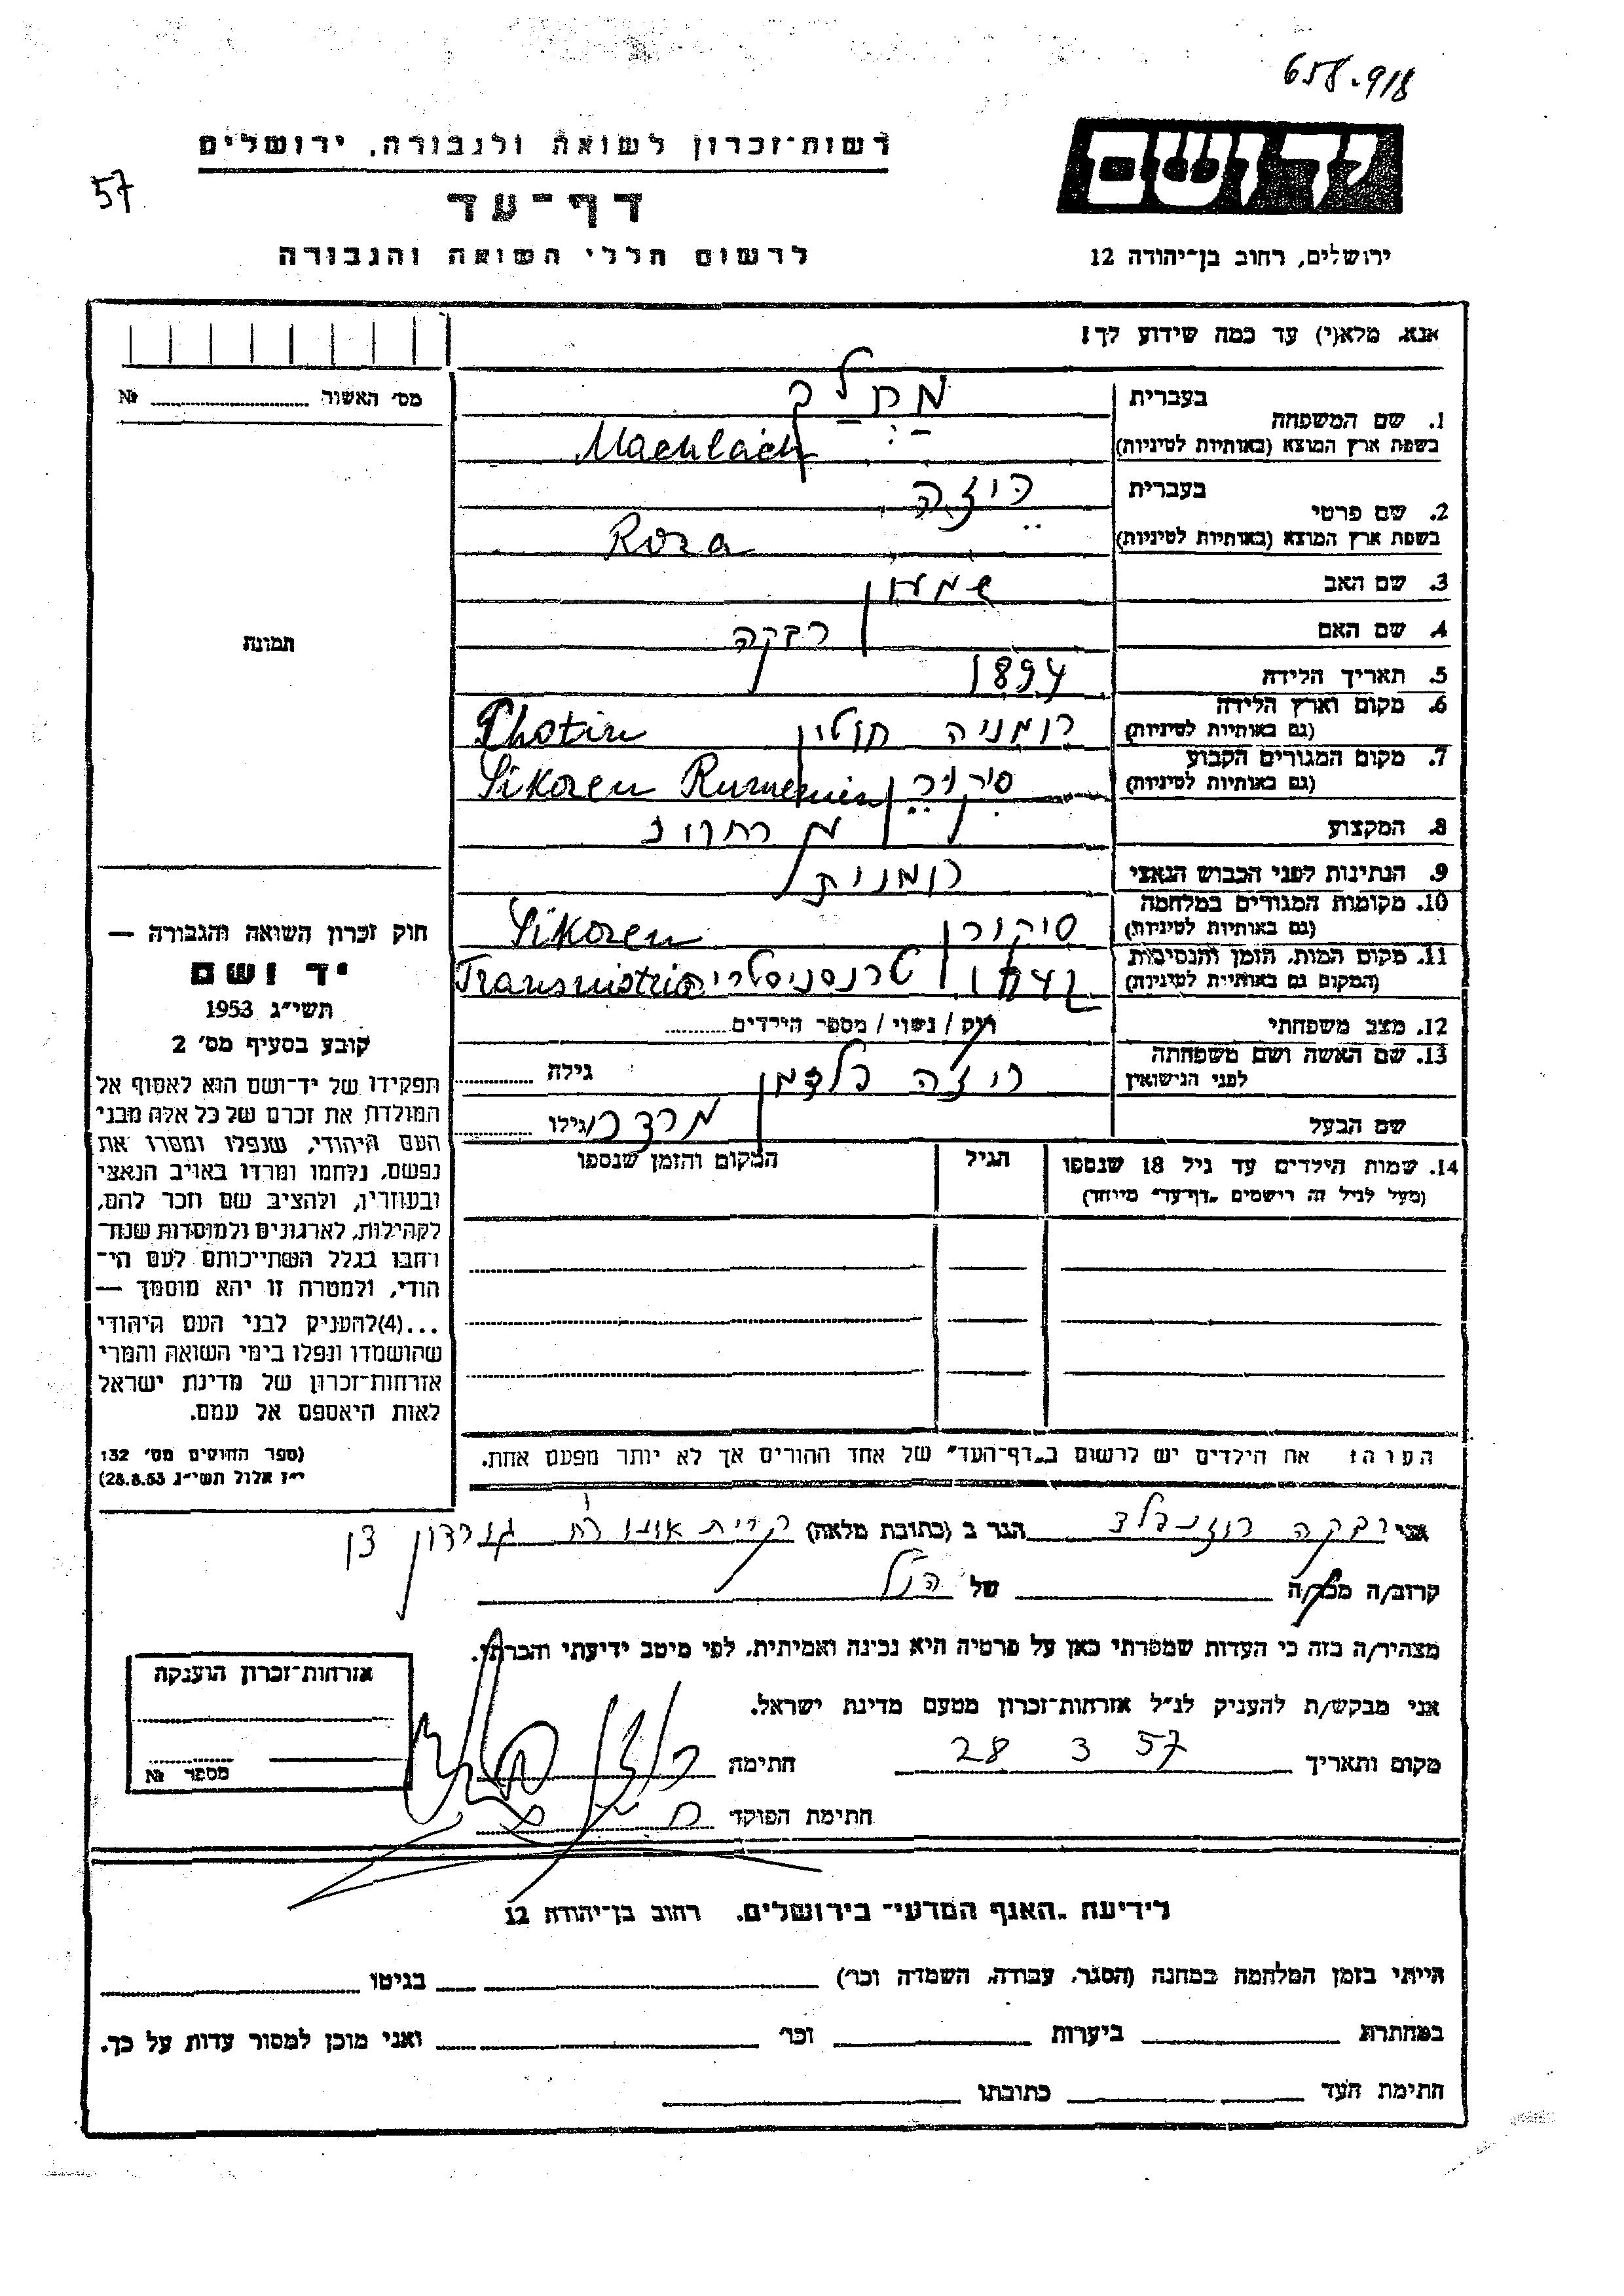 658.918
רשות־זכרון לשואה ולגבורה, ירושלים
57
דף־עד
לרשום חללי השואה והגבורה
יד ושם
ירושלים, רחוב בן־יהודה 12
אנא, מלא(י) עד כמה שידוע לך!
מס' האשור № 
1. שם המשפחה בעברית
בשפת ארץ המוצא (באותיות לטיניות) Machlach
2. שם פרטי בעברית רוזה
בשפת ארץ המוצא (באותיות לטיניות) Roza
3. שם האב שמעון
4. שם האם רבקה
תמונה
5. תאריך הלידה 1894
6. מקום וארץ הלידה רומניה חוטין
(גם באותיות לטיניות) Chotin
7. מקום המגורים הקבוע
(גם באותיות לטיניות) Sikoren
8. המקצוע
9. הנתינות לפני הכבוש הנאצי רומנית
10. מקומות המגורים במלחמה סיקורן
(גם באותיות לטיניות) Sikoren
11. מקום המות, הזמן והנסיבות 1942 טרנסניסטריה
(המקום גם באותיות לטיניות) Transnistria
12. מצב משפחתי רוק / נשוי / מספר הילדים
13. שם האשה ושם משפחתה
לפני הנישואין רוזה גילה
שם הבעל גילו
14. שמות הילדים עד גיל 18 שנספו הגיל המקום והזמן שנספו
(מעל לגיל זה רישמים „דף־עד" מייחד)
חוק זכרון השואה והגבורה —
יד ושם
תשי״ג 1953
קובע בסעיף מס' 2
תפקידו של יד־ושם הוא לאסוף אל
המולדת את זכרם של כל אלה מבני
העם היהודי, שנפלו ומסרו את
נפשם, נלחמו ומרדו באויב הנאצי
ובעוזריו, ולהציב שם וזכר להם,
לקהילות, לארגונים ולמוסדות שנח־
רחבו בגלל השתייכותם לעם הי־
הודי, ולמטרה זו יהא מוסמך —
...(4)להעניק לבני העם היהודי
שהושמדו ונפלו בימי השואה והמרי
אזרחות־זכרון של מדינת ישראל
לאות היאספם אל עמם.
(ספר החוקים מס' 132
י״ז אלול תשי״ג 28.8.53)
הערה: את הילדים יש לרשום ב„דף־העד" של אחד ההורים אך לא יותר מפעם אחת.
אני רבקה רוזנפלד הגר ב (כתובת מלאה) קרית אונו רח גורדון
קרוב/ה מכר/ה של הנ״ל
מצהיר/ה בזה כי העדות שמסרתי כאן על פרטיה היא נכונה ואמיתית, לפי מיטב ידיעתי והכרתי.
אני מבקש/ת להעניק לנ״ל אזרחות־זכרון מטעם מדינת ישראל.
מקום ותאריך 28 3 57 חתימה
חתימת הפוקד
אזרחות־זכרון הוענקה
מספר №
לידיעת „האגף המדעי" בירושלים, רחוב בן־יהודה 12
הייתי בזמן המלחמה במחנה (הסגר, עבודה, השמדה וכו') בגיטו
במחתרת ביערות וכו' ואני מוכן למסור עדות על כך.
חתימת העד כתובתו